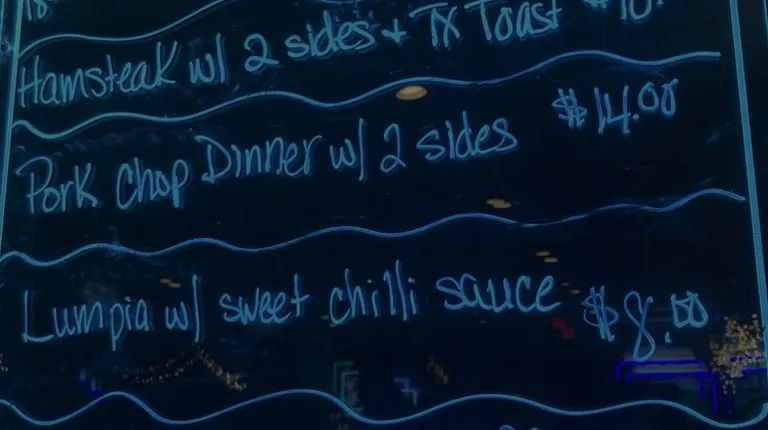 Hamsteak w/ 2 sides + TX Toast $10.
Pork Chop Dinner w/ 2 sides $14.00
Lumpia w/ sweet chilli sauce $8.00